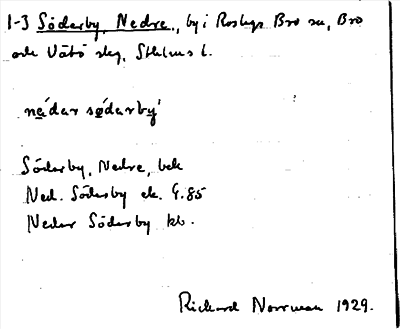 1-3 Söderby, Nedre, by i Roslags Bro sn, Bro
och Vätö skg, Sthlms l.
nédar sǿdarbý
Söderby, Nedre, bek
Ned. Söderby ek. G.85
Neder Söderby kb.
Rickard Norrman 1929.